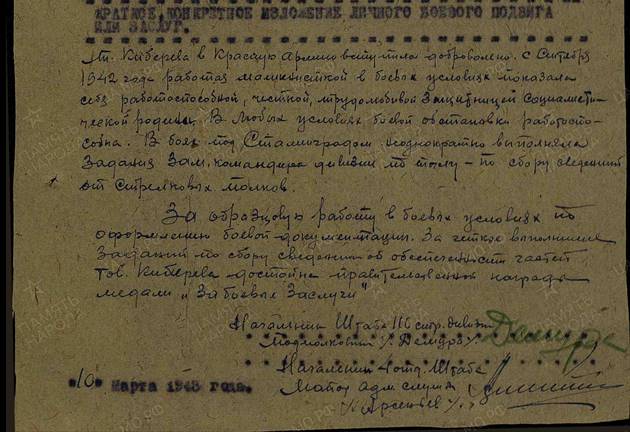 КРАТКОЕ, КОНКРЕТНОЕ ИЗЛОЖЕНИЕ ЛИЧНОГО БОЕВОГО ПОДВИГА
ИЛИ ЗАСЛУГ.
тт. Киберева в Красную армию вступила добровольно. С Октября
1942 года работая машинисткой в боевых условиях показала
себя работоспособной, честной, трудолюбивой защитницей социалисти-
ческой родины. В любых условиях боевой обстановки работоспо-
собна. В боях под Сталинградом неоднократно выполняла
задания зам. командира дивизии по тылу - по сбору сведений
от стрелковых полков.
За образцовую работу в боевых условиях по
оформлению боевой документации. За четкое выполнение
заданий по сбору сведений об обеспеченности частей
тов. Киберева достойна правительственной награды
медали "За боевые Заслуги"
Начальник Штаба 116 стр. дивизии
Подполковник /. Демура /
Начальник 4 отд. Штаба
"10" марта 1943 года.
Майор адм службы
/. Арсеньев /.